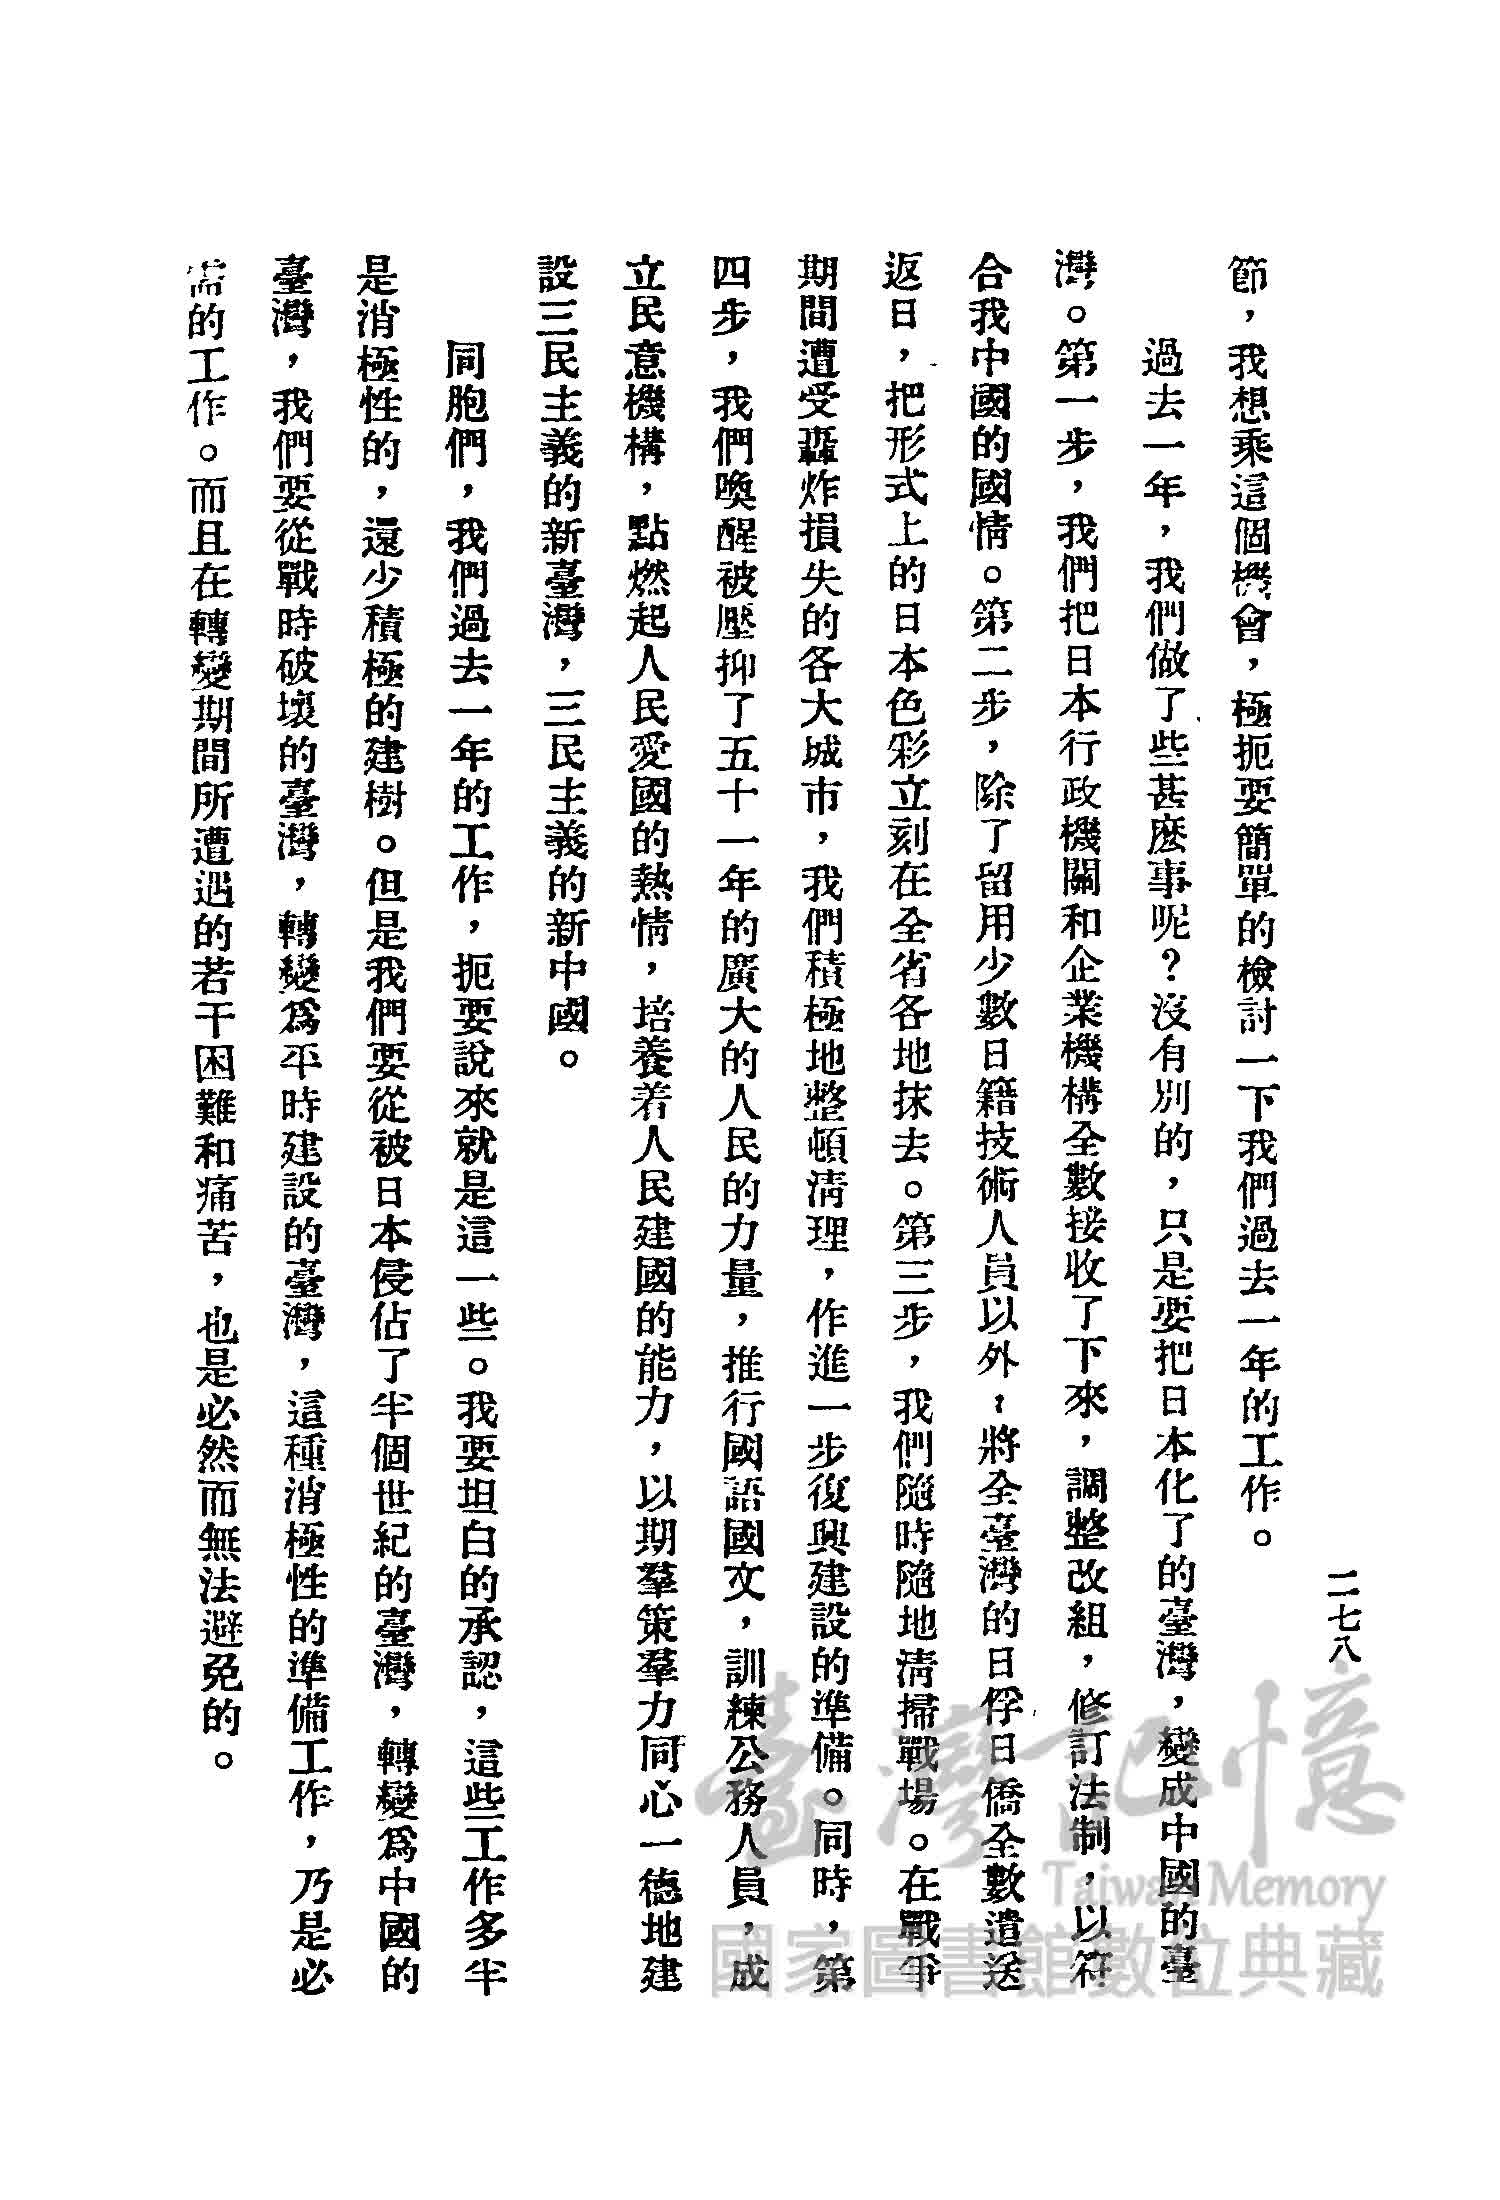 二七八
節，我想乘這個機會，極扼要簡單的檢討一下我們過去一年的工作。
過去一年，我們做了些甚麽事呢？沒有別的，只是要把日本化了的臺灣，變成中國的臺
灣。第一步，我們把日本行政機關和企業機構全數接收了下來，調整改組，修訂法制，以符
合我中國的國情。第二步，除了留用少數日籍技術人員以外，將全臺灣的日俘日僑全數遣送
返日，把形式上的日本色彩立刻在全省各地抹去。第三步，我們隨時隨地清掃戰場。在戰爭
期間遭受轟炸損失的各大城市，我們積極地整頓清理，作進一步復興建設的準備。同時，第
四步，我們喚醒被壓抑了五十一年的廣大的人民的力量，推行國語國文，訓練公務人員，成
立民意機構，點燃起人民愛國的熱情，培養着人民建國的能力，以期羣策羣力同心一德地建
設三民主義的新臺灣，三民主義的新中國。
同胞們，我們過去一年的工作，扼要說來就是這一些。我要坦白的承認，這些工作多半
是消極性的，還少積極的建樹。但是我們要從被日本侵佔了半個世紀的臺灣，轉變爲中國的
臺灣，我們要從戰時破壞的臺灣，轉變爲平時建設的臺灣，這種消極性的準備工作，乃是必
需的工作。而且在轉變期間所遭遇的若干困難和痛苦，也是必然而無法避免的。
臺灣記憶
Taiwan Memory
國家圖書館數位典藏